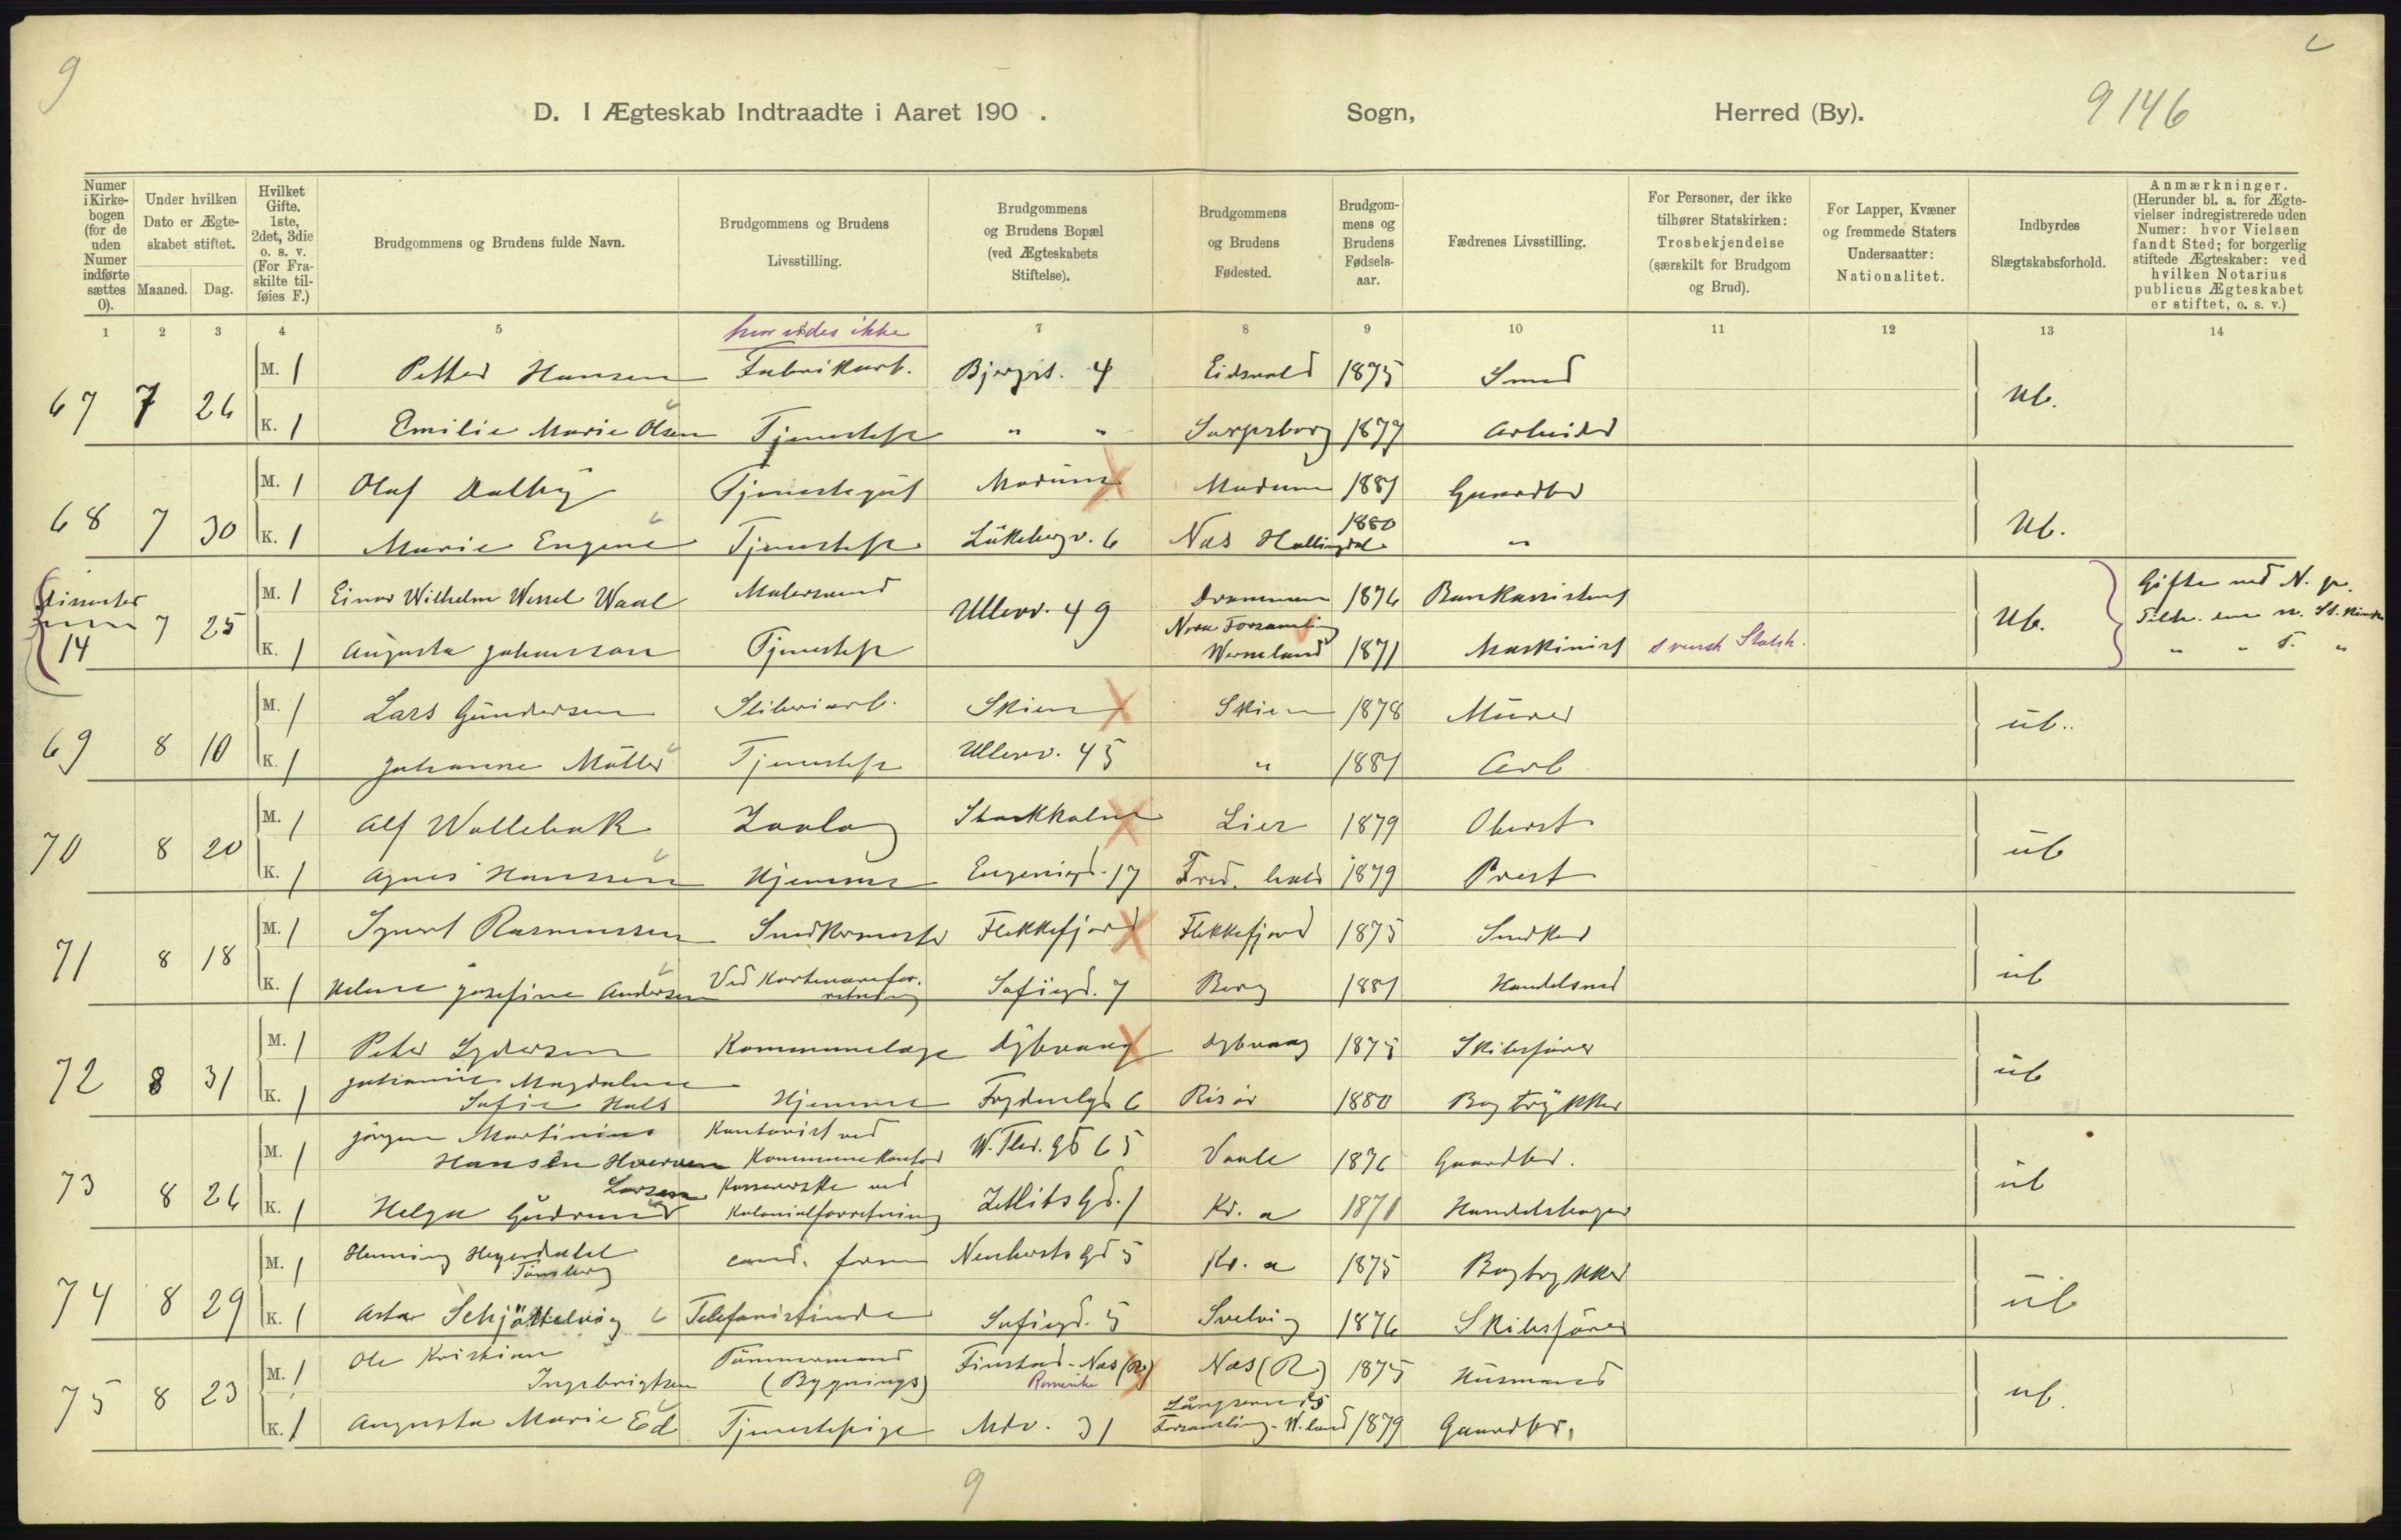 9
D. I Ægteskab Indtraadte i Aaret 190 . Sogn, Herred (By). 9146
Numer i Kirke-bogen (for de uden Numer indførte sættes 0).
Under hvilken Dato er Ægte-skabet stiftet.
Maaned. Dag.
Hvilket Gifte. 1ste, 2det, 3die o. s. v. (For Fra-skilte til-føies F.)
Brudgommens og Brudens fulde Navn.
Brudgommens og Brudens Livsstilling.
Brudgommens og Brudens Bopæl (ved Ægteskabets Stiftelse).
Brudgommens og Brudens Fødested.
Brudgom-mens og Brudens Fødsels-aar.
Fædrenes Livsstilling.
For Personer, der ikke tilhører Statskirken: Trosbekjendelse (særskilt for Brudgom og Brud).
For Lapper, Kvæner og fremmede Staters Undersaatter: Nationalitet.
Indbyrdes Slægtskabsforhold.
Anmærkninger. (Herunder bl. a. for Ægte-vielser indregistrerede uden Numer: hvor Vielsen fandt Sted; for borgerlig stiftede Ægteskaber: ved hvilken Notarius publicus Ægteskabet er stiftet, o. s. v.)
1 2 3 4 5 6 7 8 9 10 11 12 13 14
hvor vides ikke
67 7 26 M. 1 Petter Hansen Fabrikarb. Bjergst. 4 Eidsvold 1875 Smed Ub.
K. 1 Emilie Marie Olsen Tjenestepe " " Sarpsborg 1877 Arbeider
68 7 30 M. 1 Olaf Dalby Tjenestegut Modum Modum 1881 Gaardbr Ub.
K. 1 Marie Engene Tjenestepe Lükkebergv. 6 Næs Hallingdal 1880 "
Dissenter 14 7 25 M. 1 Einar Wilhelm Wessel Waal Malersvend Ullevv. 49 Drammen 1876 Bankassistent Ub. Gifte ved N. p.
K. 1 Augusta Johansson Tjenestepe Forsamling Wermland 1871 Maskinist svensk Statsk. " " "
69 8 10 M. 1 Lars Gundersen Sliberiarb. Skien Skien 1878 Murer ub.
K. 1 Johanne Møller Tjenestepe Ullevv. 45 " 1881 Arb
70 8 20 M. 1 Alf Wollebæk Zoolog Stockholm Lier 1879 Oberst ub
K. 1 Agnes Hanssen Hjemme Eugeniegd. 17 Fred. hald 1879 Prest
71 8 18 M. 1 Sigurd Rasmussen Snedkermester Flekkefjord Flekkefjord 1875 Snedker ub
K. 1 Helene Josefine Andersen Ved Kortevarefor-retning Sofiegd. 7 Berg 1881 Handelsmd
72 8 31 M. 1 Peter Lydersen Kommunelæge Dybvaag Dybvaag 1875 Skibsfører ub
K. 1 Johanne Magdalene Sofie Hals Hjemme Frydenlgd 6 Risør 1880 Bogtrykker
73 8 26 M. 1 Jørgen Martinius Hansen Hverven Kontorist ved Kommune Kontor W. Thr. gd 65 Vaale 1876 Gaardbr. ub
K. 1 Helga Gudrun Larsen Kassererske ved Kolonialforretning Zetlitz Gd. 1 Kr. a 1871 Handelsborger
74 8 29 M. 1 Henning Heyerdahl Tønsberg cand. farm Neuberts Gd 5 Kr. a 1875 Bogtrykker ub
K. 1 Asta Schjøttelvig Telefonistinde Sofiegd. 5 Svelvig 1876 Skibsfører
75 8 23 M. 1 Ole Kristian Ingebrigtsen Tømmermand (Bygnings) Finstad - Næs (R) Romerike Næs (R) 1875 Husmand ub.
K. 1 Augusta Marie Ed Tjenestepige Mdv. 31 Långseruds Forsamling - W. land 1879 Gaardbr.
9